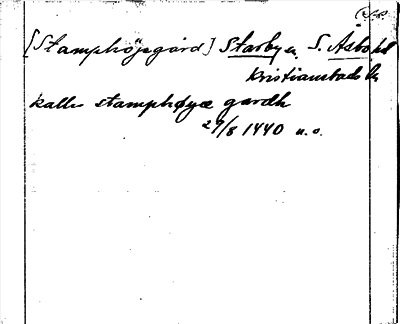 [Stamphöjagård] Starby sn. S. Åsbo hd
Kristianstads l.
kalle stamphøyæ gardh
29/8 1440 u.o.